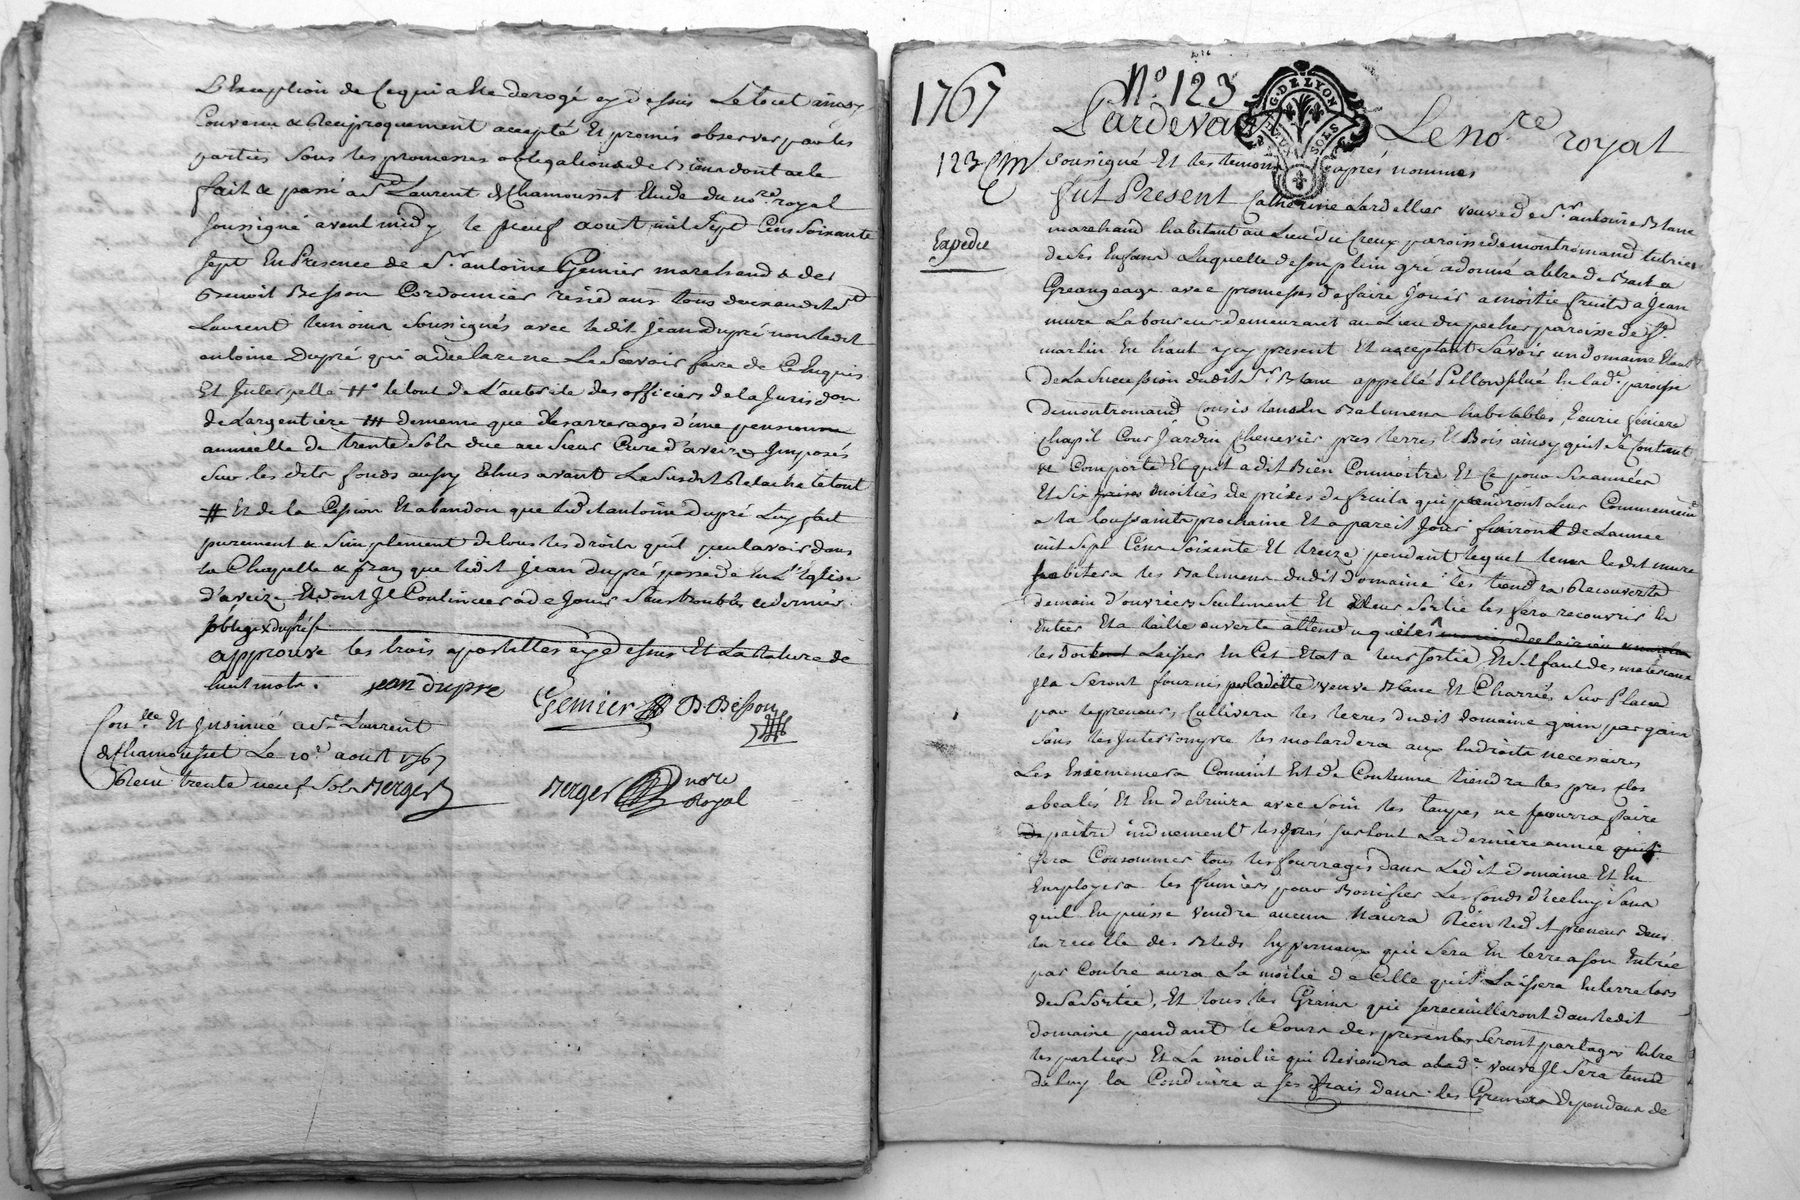 L'Exception de Cequi a Ete derogé cy dessus Le tout ainsy
Convenu & Reciproquement accepté Et promis observer par les
parties sous les promesses obligations de Biens dont acte
fait & passé a St Laurent de Chamousset Etude du nore royal
soussigné avant midy le neuf aoust mil sept Cens Soixante
sept En Presence de Sr antoine Gemier marchand & de
Benoit Besson Cordonnier residans tous deux audit St
Laurent temoins Soussignés avec ledit jean Dupré non ledit
antoine Dupré qui a declaré ne Le sçavoir faire de Ce Enquis
Et Interpellé # le tout de L'autorité des officiers de la Jurisdon
de Largentière # de meme que des arrerages d'une pension
annuelle de trente sols due au Sieur Curé d'aveize Imposés
Sur les dits fonds aussy Echus avant La Susdit Relache le tout
# Et de la Cession Et abandon que ledit antoine Dupré Luy fait
purement & Simplement de tous les droits qu'il peut avoir dans
la Chapelle & que ledit Jean Dupré possede En L'Eglise
d'aveize Et dont Il Continuera de Jouir Sans trouble ce dernier
approuvé les trois apostilles cy dessus Et La Rature de
huit mots. jean dupré Gemier B. Besson
Conlle Et Insinué a St Laurent
de Chamousset Le 10e aoust 1767
Reçu trente neuf sols Berger
Berger nore
Royal
1767
No. 123
G. DE LYON
DEUX SOLS
Pardevant Le nore royal
123
soussigné Et les temoins aprés nommés
Expedié
fut Present Catherine Lardellier veuve de Sr antoine Blanc
marchand habitant au Lieu du Creux paroisse de montromand tutrice
de ses Enfans Laquelle de son plein gré a donné a titre de Bail a
Greangeage avec promesses de faire Jouir a moitié fruits a Jean
mure Laboureur demeurant au Lieu du pecher paroisse de St
martin En haut icy present Et acceptant Savoir un domaine Etant
de La Succession dudit Sr Blanc appellé Pillon situé En lade paroisse
de montromand Consistant En Batimens habitables, Ecurie feniere
chapit Cour Jardin Chenevier prés terres Et Bois ainsy qu'il Se Contient
& Comporte Et qu'il a dit Bien Connoître Et Ce pour Six années
Et Six prises moitiés de prises de fruits qui prendront Leur Commencemt
a la toussaints prochaine Et a pareil Jour finiront de L'année
mil Sept Cens Soixante Et treize pendant lequel tems ledit mure
habitera les Batimens dudit Domaine les tiendra Recouverts
de main d'ouvriers Seulement Et a Leur Sortie les fera recouvrir En
Entier Et a taille ouverte attendu qu'il
les doit Laisser En Cet Etat a leur sortie, Et S'il faut des materiaux
Ils Seront fournis par ladite veuve Blanc Et Charriés Sur Place
par le preneur, Cultivera les terres dudit domaine gain par gain
Sans les Interrompre les molardera aux Endroits necessaires
Les Ensemencera Comm'il Est de Coutume tiendra les prés clos
abealés Et En detruira avec Soin les taupes ne pourra faire
paitre induement les prés surtout La derniere année
fera Consommer tous les fourrages dans Ledit domaine Et En
Employera les fumiers pour Bonifier Les fonds d'iceluy Sans
qu'il En puisse vendre aucun N'aura Rien ledit preneur dans
la recolte des Bleds hyvernaux qui Sera En terre a son Entrée
par Contre aura La moitié de Celle qu'il Laissera En terre lors
de Sa Sortie, Et tous les Grains qui se receuilleront dans ledit
domaine pendant le Cours des presentes Seront partagés Entre
les parties Et La moitié qui Reviendra a lade veuve Il Sera tenu
de luy la Conduire a ses frais dans les Greniers dependans de